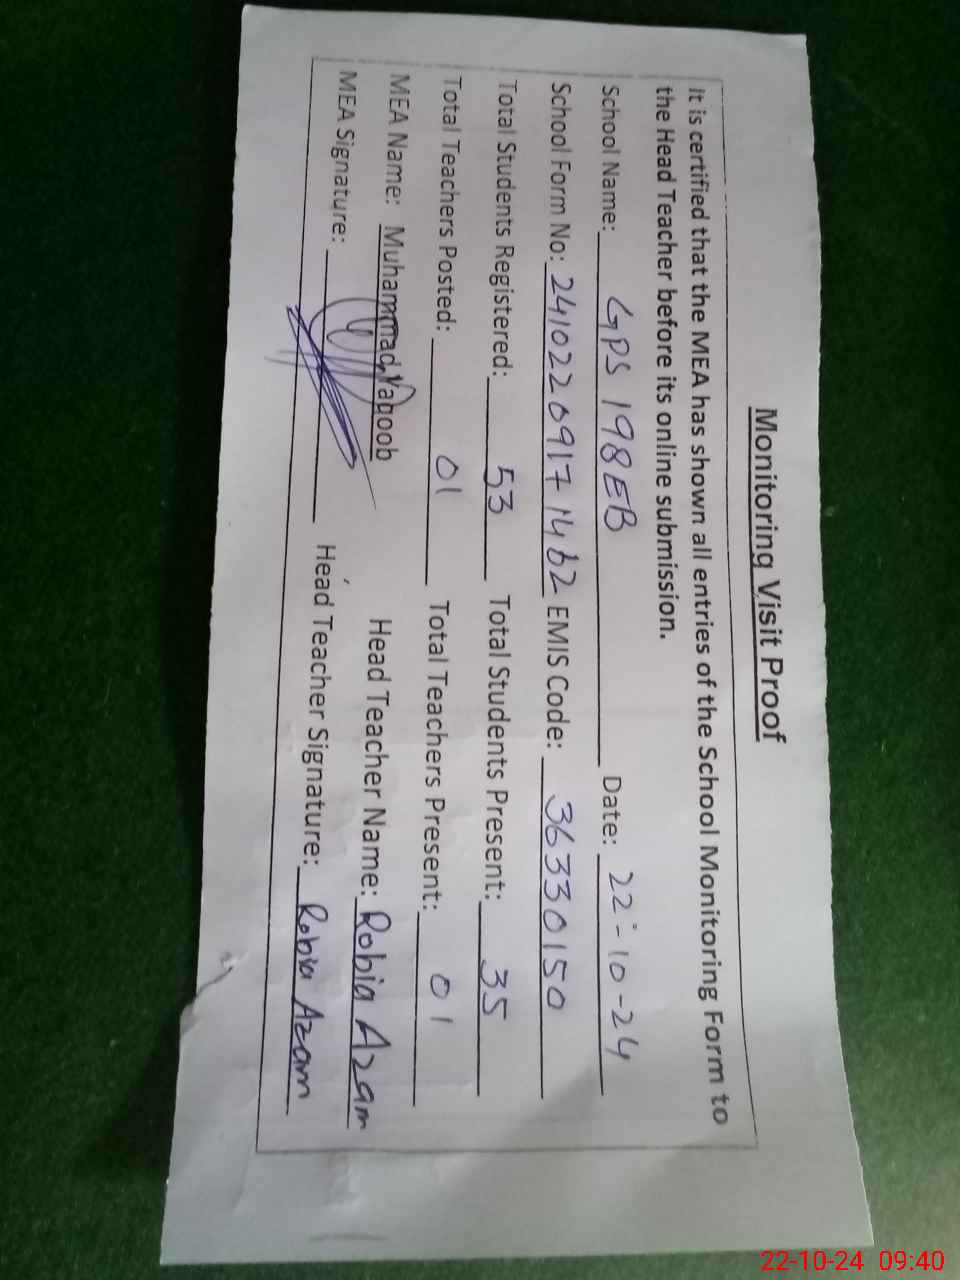 Monitoring Visit Proof
It is certified that the MEA has shown all entries of the School Monitoring Form to
the Head Teacher before its online submission.
School Name: GPS 198EB Date: 22-10-24
School Form No: 2410220917 1462 EMIS Code: 36330150
Total Students Registered: 53 Total Students Present: 35
Total Teachers Posted: 01 Total Teachers Present: 01
MEA Name: Muhammad Yaqoob Head Teacher Name: Robia Azam
MEA Signature: Head Teacher Signature: Robia Azam
22-10-24 09:40